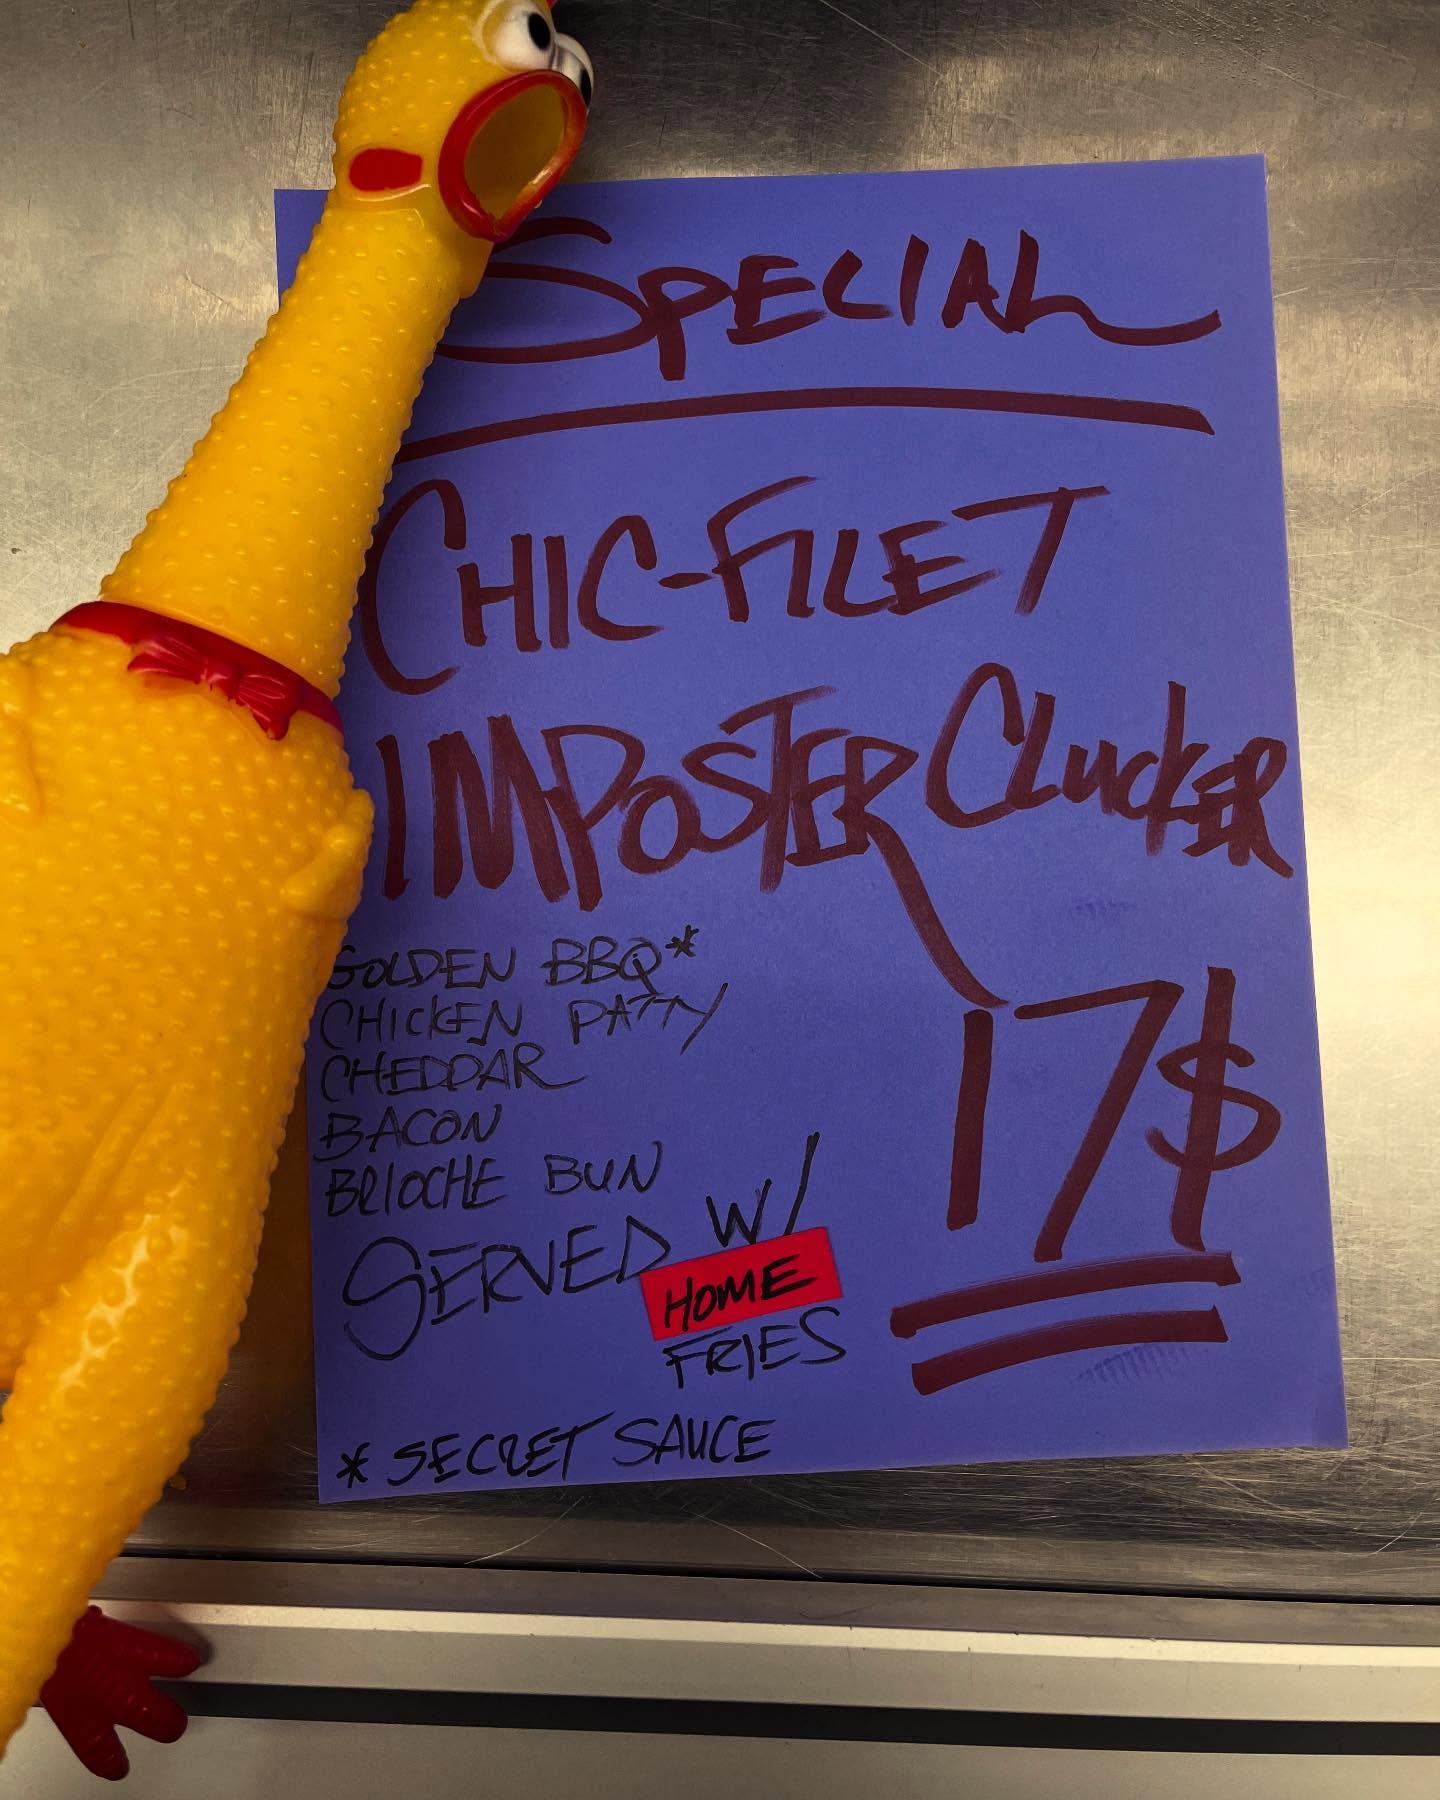 SPECIAL
CHIC-FILET
IMPOSTER CLUCKER
17$
GOLDEN BBQ*
CHICKEN PATTY
CHEDDAR
BACON
BRIOCHE BUN
SERVED W/
HOME
FRIES
* SECRET SAUCE